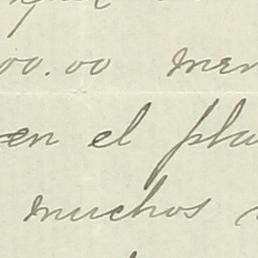 00.00 men
en el pla
muchos